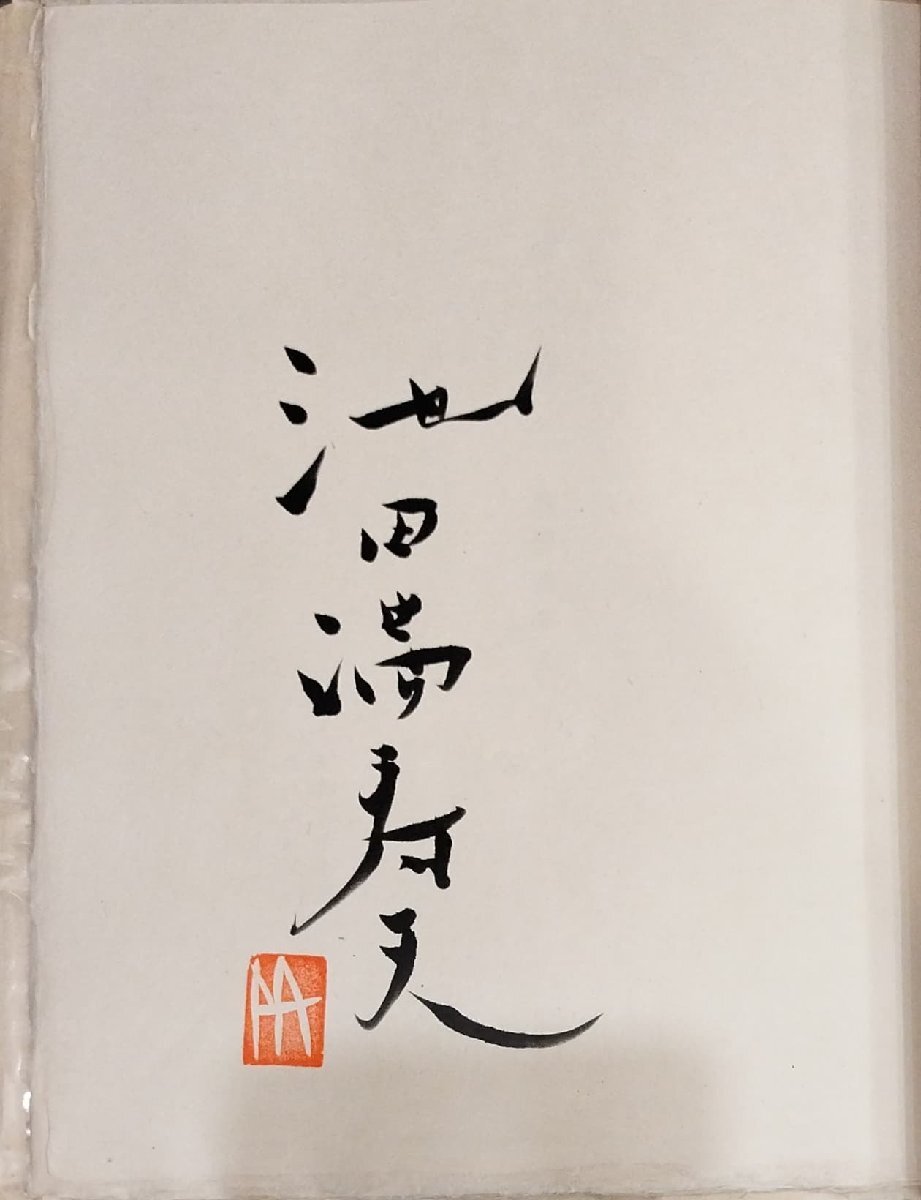 池田満寿夫